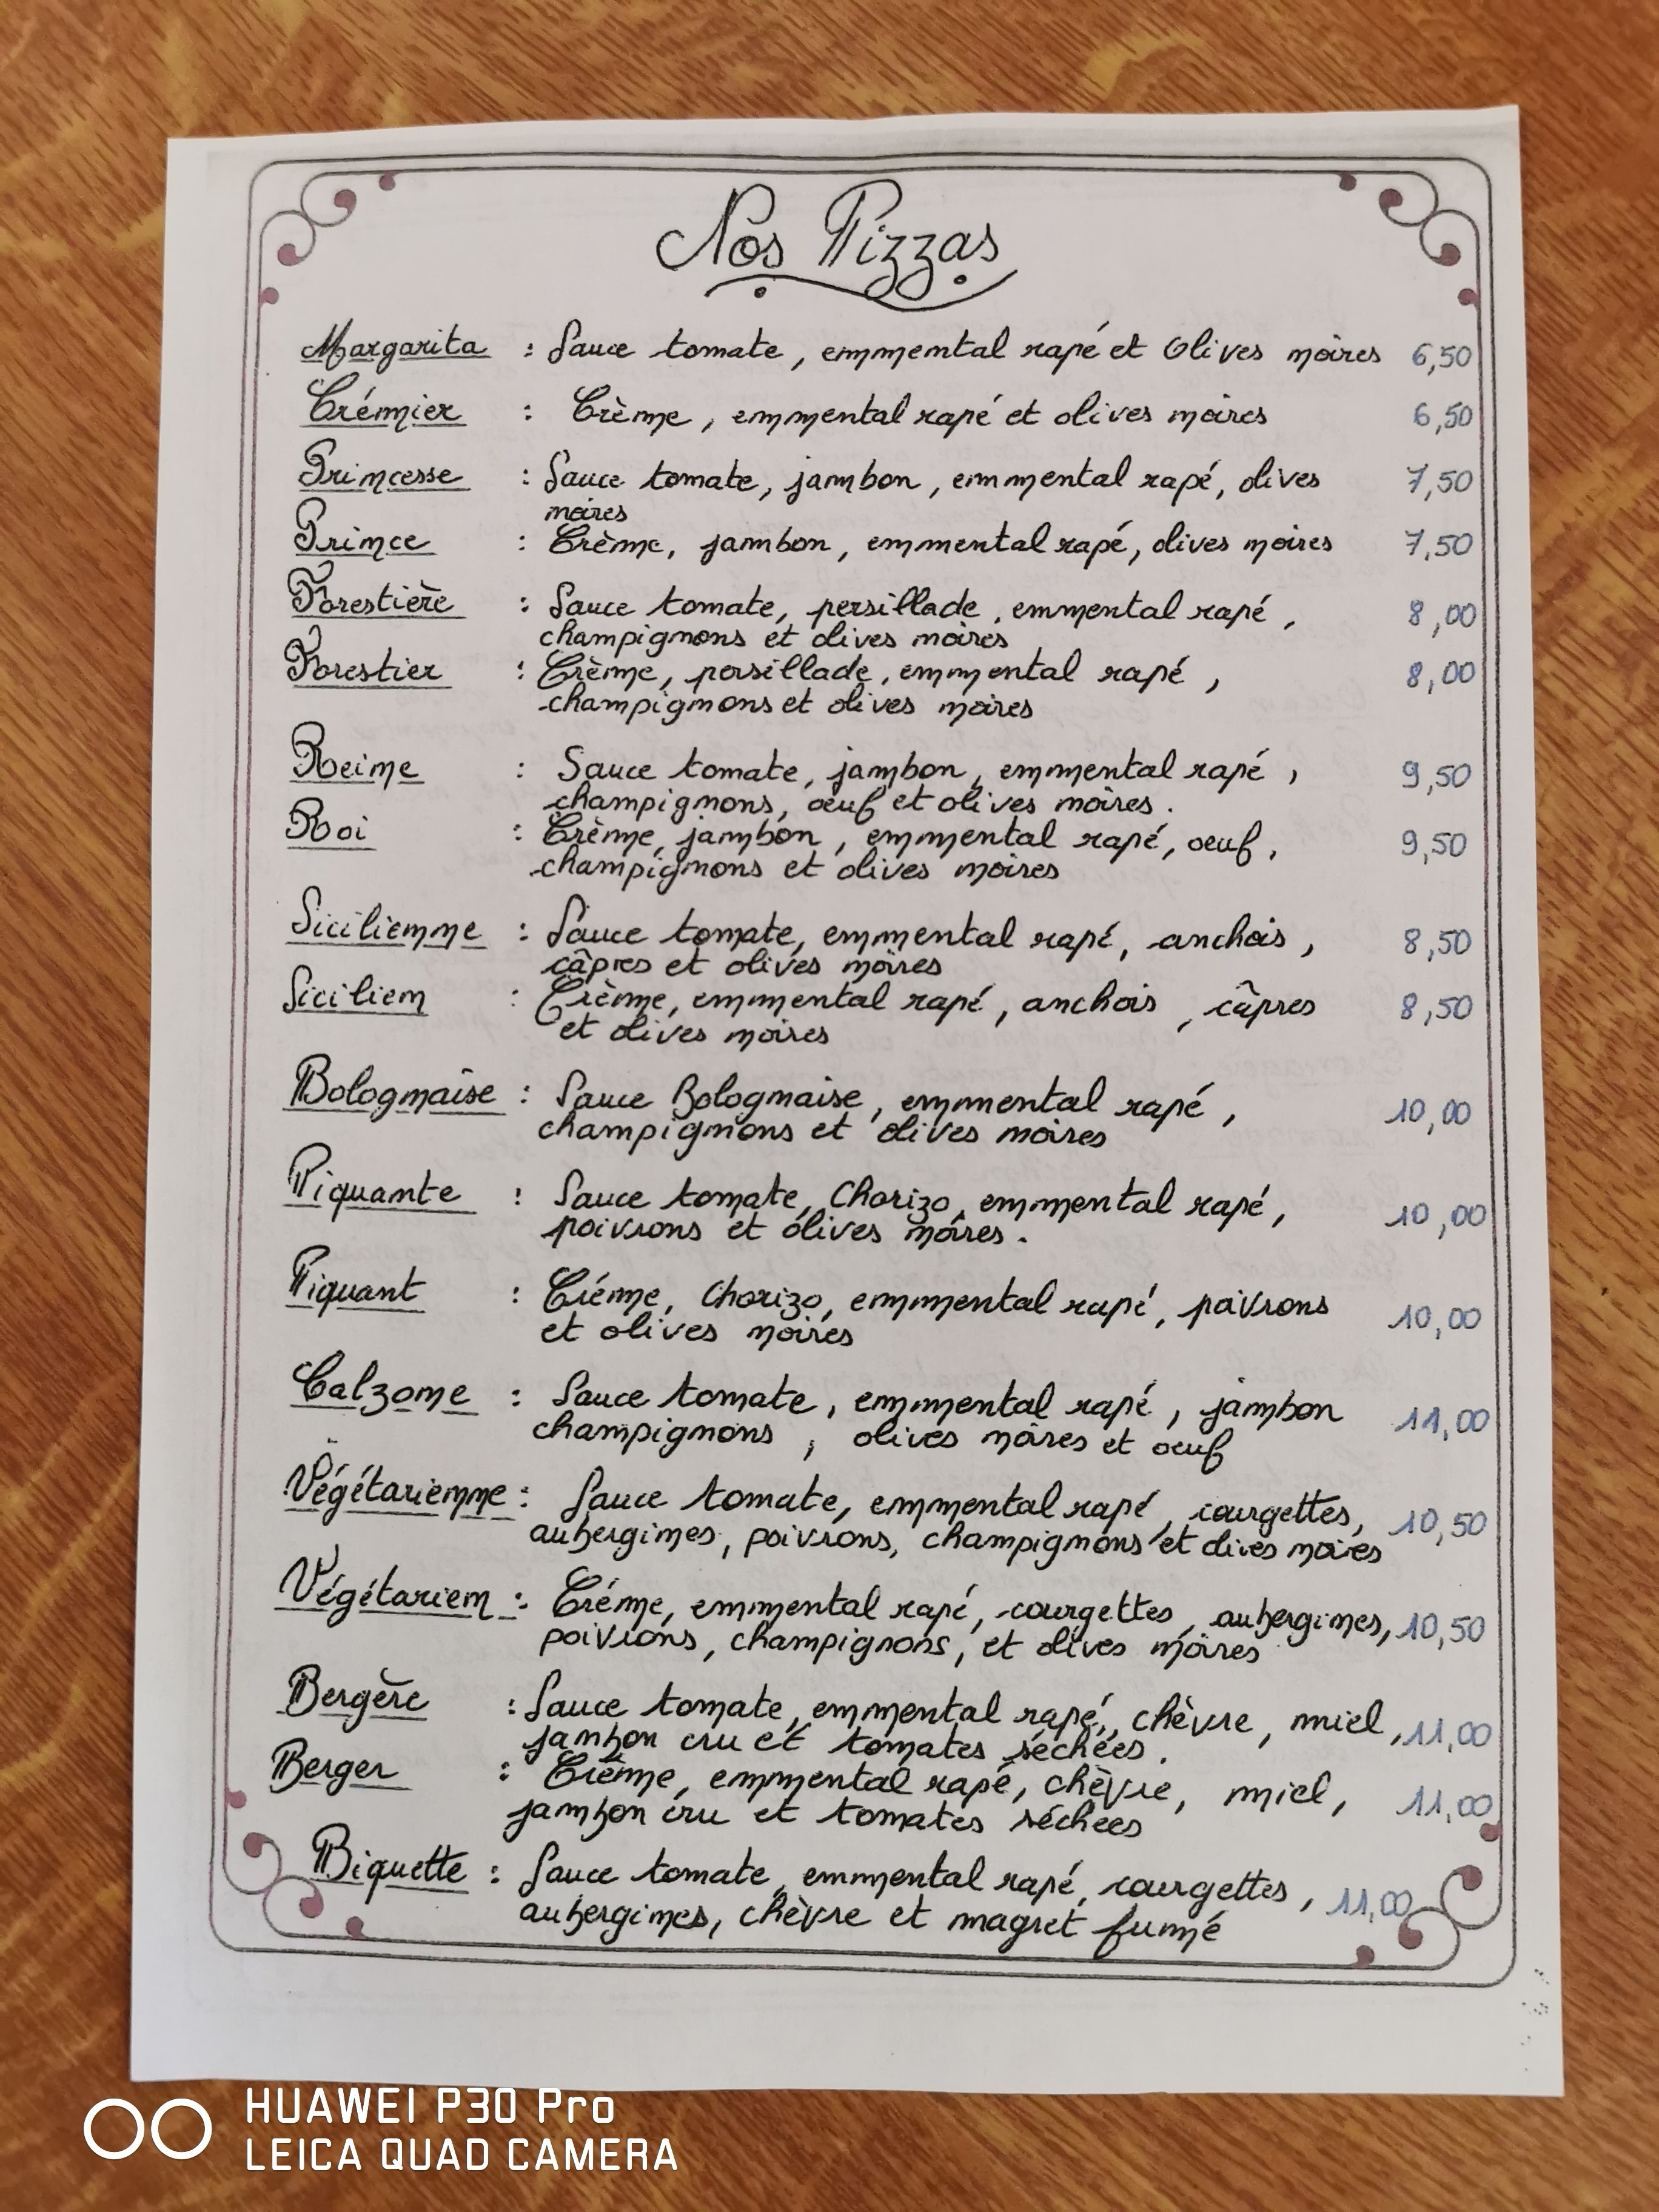 Nos Pizzas
Margarita : Sauce tomate, emmental rapé et Olives noires 6,50
Crémier : Crème, emmental rapé et olives noires 6,50
Princesse : Sauce tomate, jambon, emmental rapé, olives 7,50
noires
Prince : Crème, jambon, emmental rapé, olives noires 7,50
Forestière : Sauce tomate, persillade, emmental rapé, 8,00
champignons et olives noires
Forestier : Crème, persillade, emmental rapé, 8,00
champignons et olives noires
Reine : Sauce tomate, jambon, emmental rapé, 9,50
champignons, oeuf et olives noires.
Roi : Crème, jambon, emmental rapé, oeuf, 9,50
champignons et olives noires
Sicilienne : Sauce tomate, emmental rapé, anchois, 8,50
câpres et olives noires
Sicilien : Crème, emmental rapé, anchois, câpres 8,50
et olives noires
Bolognaise : Sauce Bolognaise, emmental rapé, 10,00
champignons et olives noires
Piquante : Sauce tomate, Chorizo, emmental rapé, 10,00
poivrons et olives noires.
Piquant : Créme, Chorizo, emmental rapé, poivrons 10,00
et olives noires
Calzone : Sauce tomate, emmental rapé, jambon 11,00
champignons, olives noires et oeuf
Végétarienne : Sauce tomate, emmental rapé, courgettes, 10,50
aubergines, poivrons, champignons et olives noires
Végétarien : Créme, emmental rapé, courgettes, aubergines, 10,50
poivrons, champignons, et olives noires
Bergère : Sauce tomate, emmental rapé, chèvre, miel, 11,00
jambon cru et tomates séchées.
Berger : Crème, emmental rapé, chèvre, miel, 11,00
jambon cru et tomates séchées
Biquette : Sauce tomate, emmental rapé, courgettes, 11,00
aubergines, chèvre et magret fumé
HUAWEI P30 Pro
LEICA QUAD CAMERA